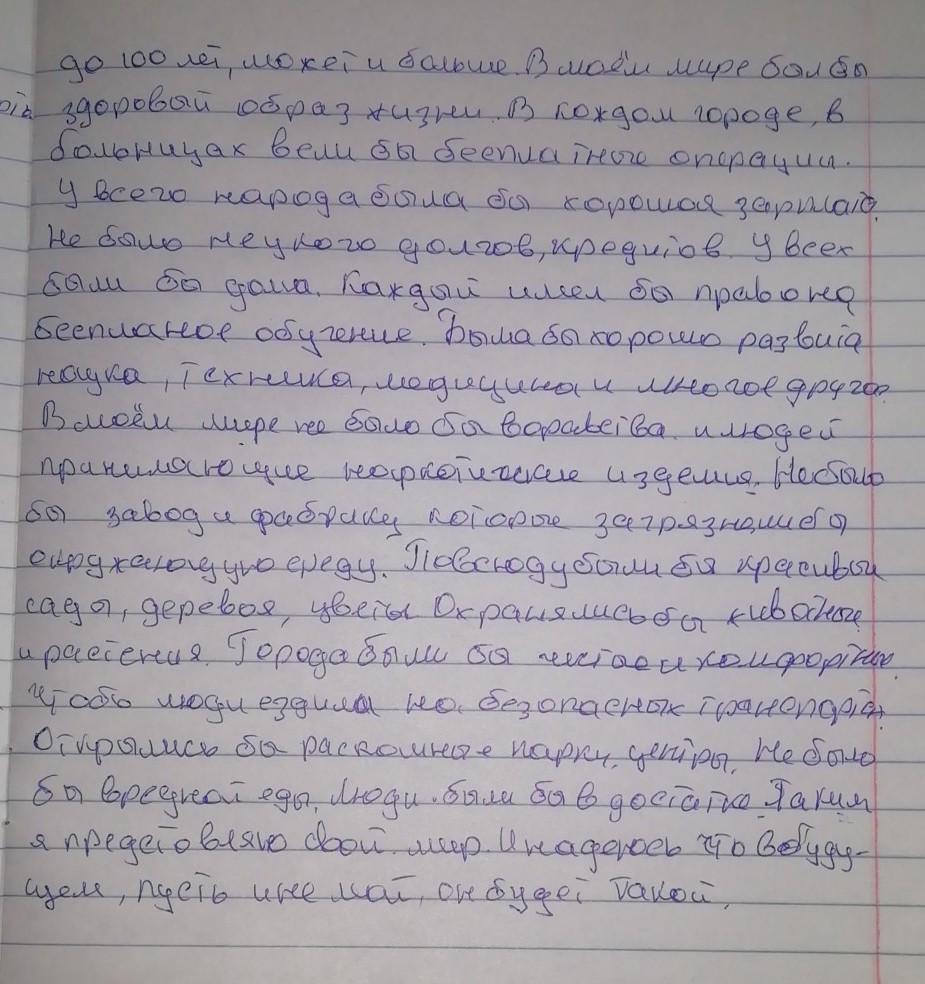 до 100 лет, может и больше. В моём мире был бы
здоровый образ жизни. В каждом городе, в
больницах вели бы бесплатные операции.
У всего народа была бы хорошая зарплат.
Не было не у кого долгов, кредитов. У всех
были бы дома. Каждый имел бы право на
бесплатное обучение. Была бы хорошо развита
наука, техника, медицина и многое другое
В моём мире не было бы воравства и людей
принимающие наркотические изделия. Не было
бы завод и фабрику которые загрязняли бы
окружающую среду. Повсюду были бы красивый
сады, деревья, цветы Охранялись бы животные
и растения. Города были бы чистые и комфортные.
Чтобы люди ездила на безопасных транспорта,
Открылись бы раскошные парки, центры, Не было
бы вредной еды, Люди были бы в достатке Таким
я представляю свой мир И надеюсь что в буду-
щем, пусть и не мой, он будет такой,